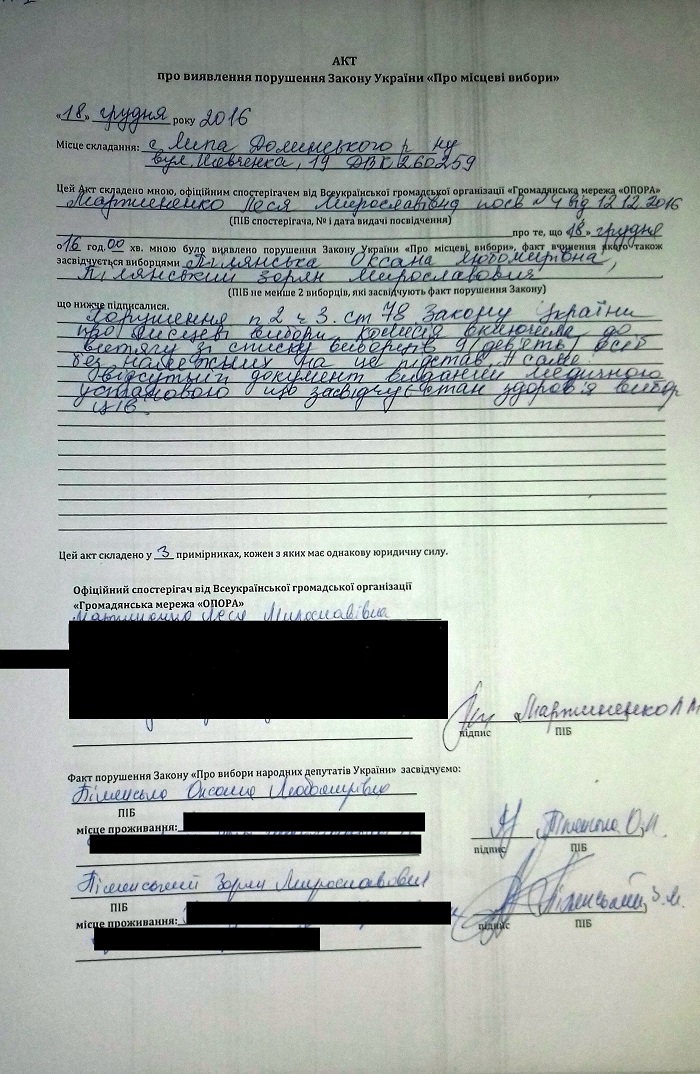 АКТ
про виявлення порушення Закону України «Про місцеві вибори»
«18» грудня року 2016
Місце складання: с. Липа Долинського р-ну
вул. Шевченка, 19 ДВК 260259
Цей Акт складено мною, офіційним спостерігачем від Всеукраїнської громадської організації «Громадянська мережа «ОПОРА»
Мартиненко Леся Мирославівна посв №4 від 12.12.2016
(ПІБ спостерігача, № і дата видачі посвідчення)
про те, що «18» грудня
о 16 год. 00 хв. мною було виявлено порушення Закону України «Про місцеві вибори», факт вчинення якого також
засвідчується виборцями Оксана Любомирівна,
Зорян Мирославович
(ПІБ не менше 2 виборців, які засвідчують факт порушення Закону)
що нижче підписалися.
Порушення п 2 ч 3. ст 78 Закону України
про місцеві вибори, комісія включила до
витягу зі списку виборців 9 (дев'ять) осіб
без належних на це підстав, а саме:
відсутній документ виданий медичною
установою що засвідчує стан здоров'я вибор
ців.
Цей акт складено у 3 примірниках, кожен з яких має однакову юридичну силу.
Офіційний спостерігач від Всеукраїнської громадської організації
«Громадянська мережа «ОПОРА»
Мартиненко Леся Мирославівна
Мартиненко Л М
підпис ПІБ
Факт порушення Закону «Про вибори народних депутатів України» засвідчуємо:
Оксана Любомирівна
ПІБ
місце проживання:
підпис ПІБ
Зорян Мирославович
ПІБ
місце проживання:
З.М.
підпис ПІБ